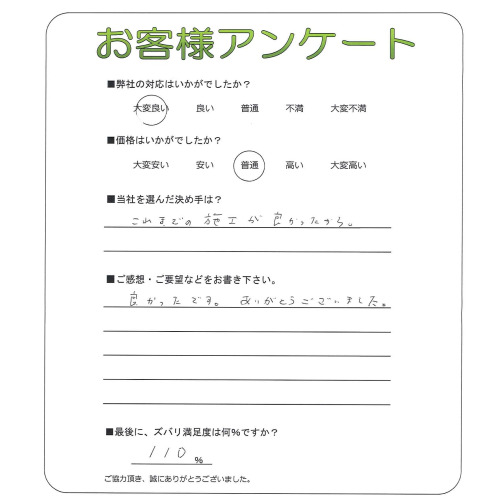 お客様アンケート
■弊社の対応はいかがでしたか？
大変良い 良い 普通 不満 大変不満
■価格はいかがでしたか？
大変安い 安い 普通 高い 大変高い
■当社を選んだ決め手は？
これまでの施工が良かったから。
■ご感想・ご要望などをお書き下さい。
良かったです。ありがとうございました。
■最後に、ズバリ満足度は何%ですか？
110 %
ご協力頂き、誠にありがとうございました。